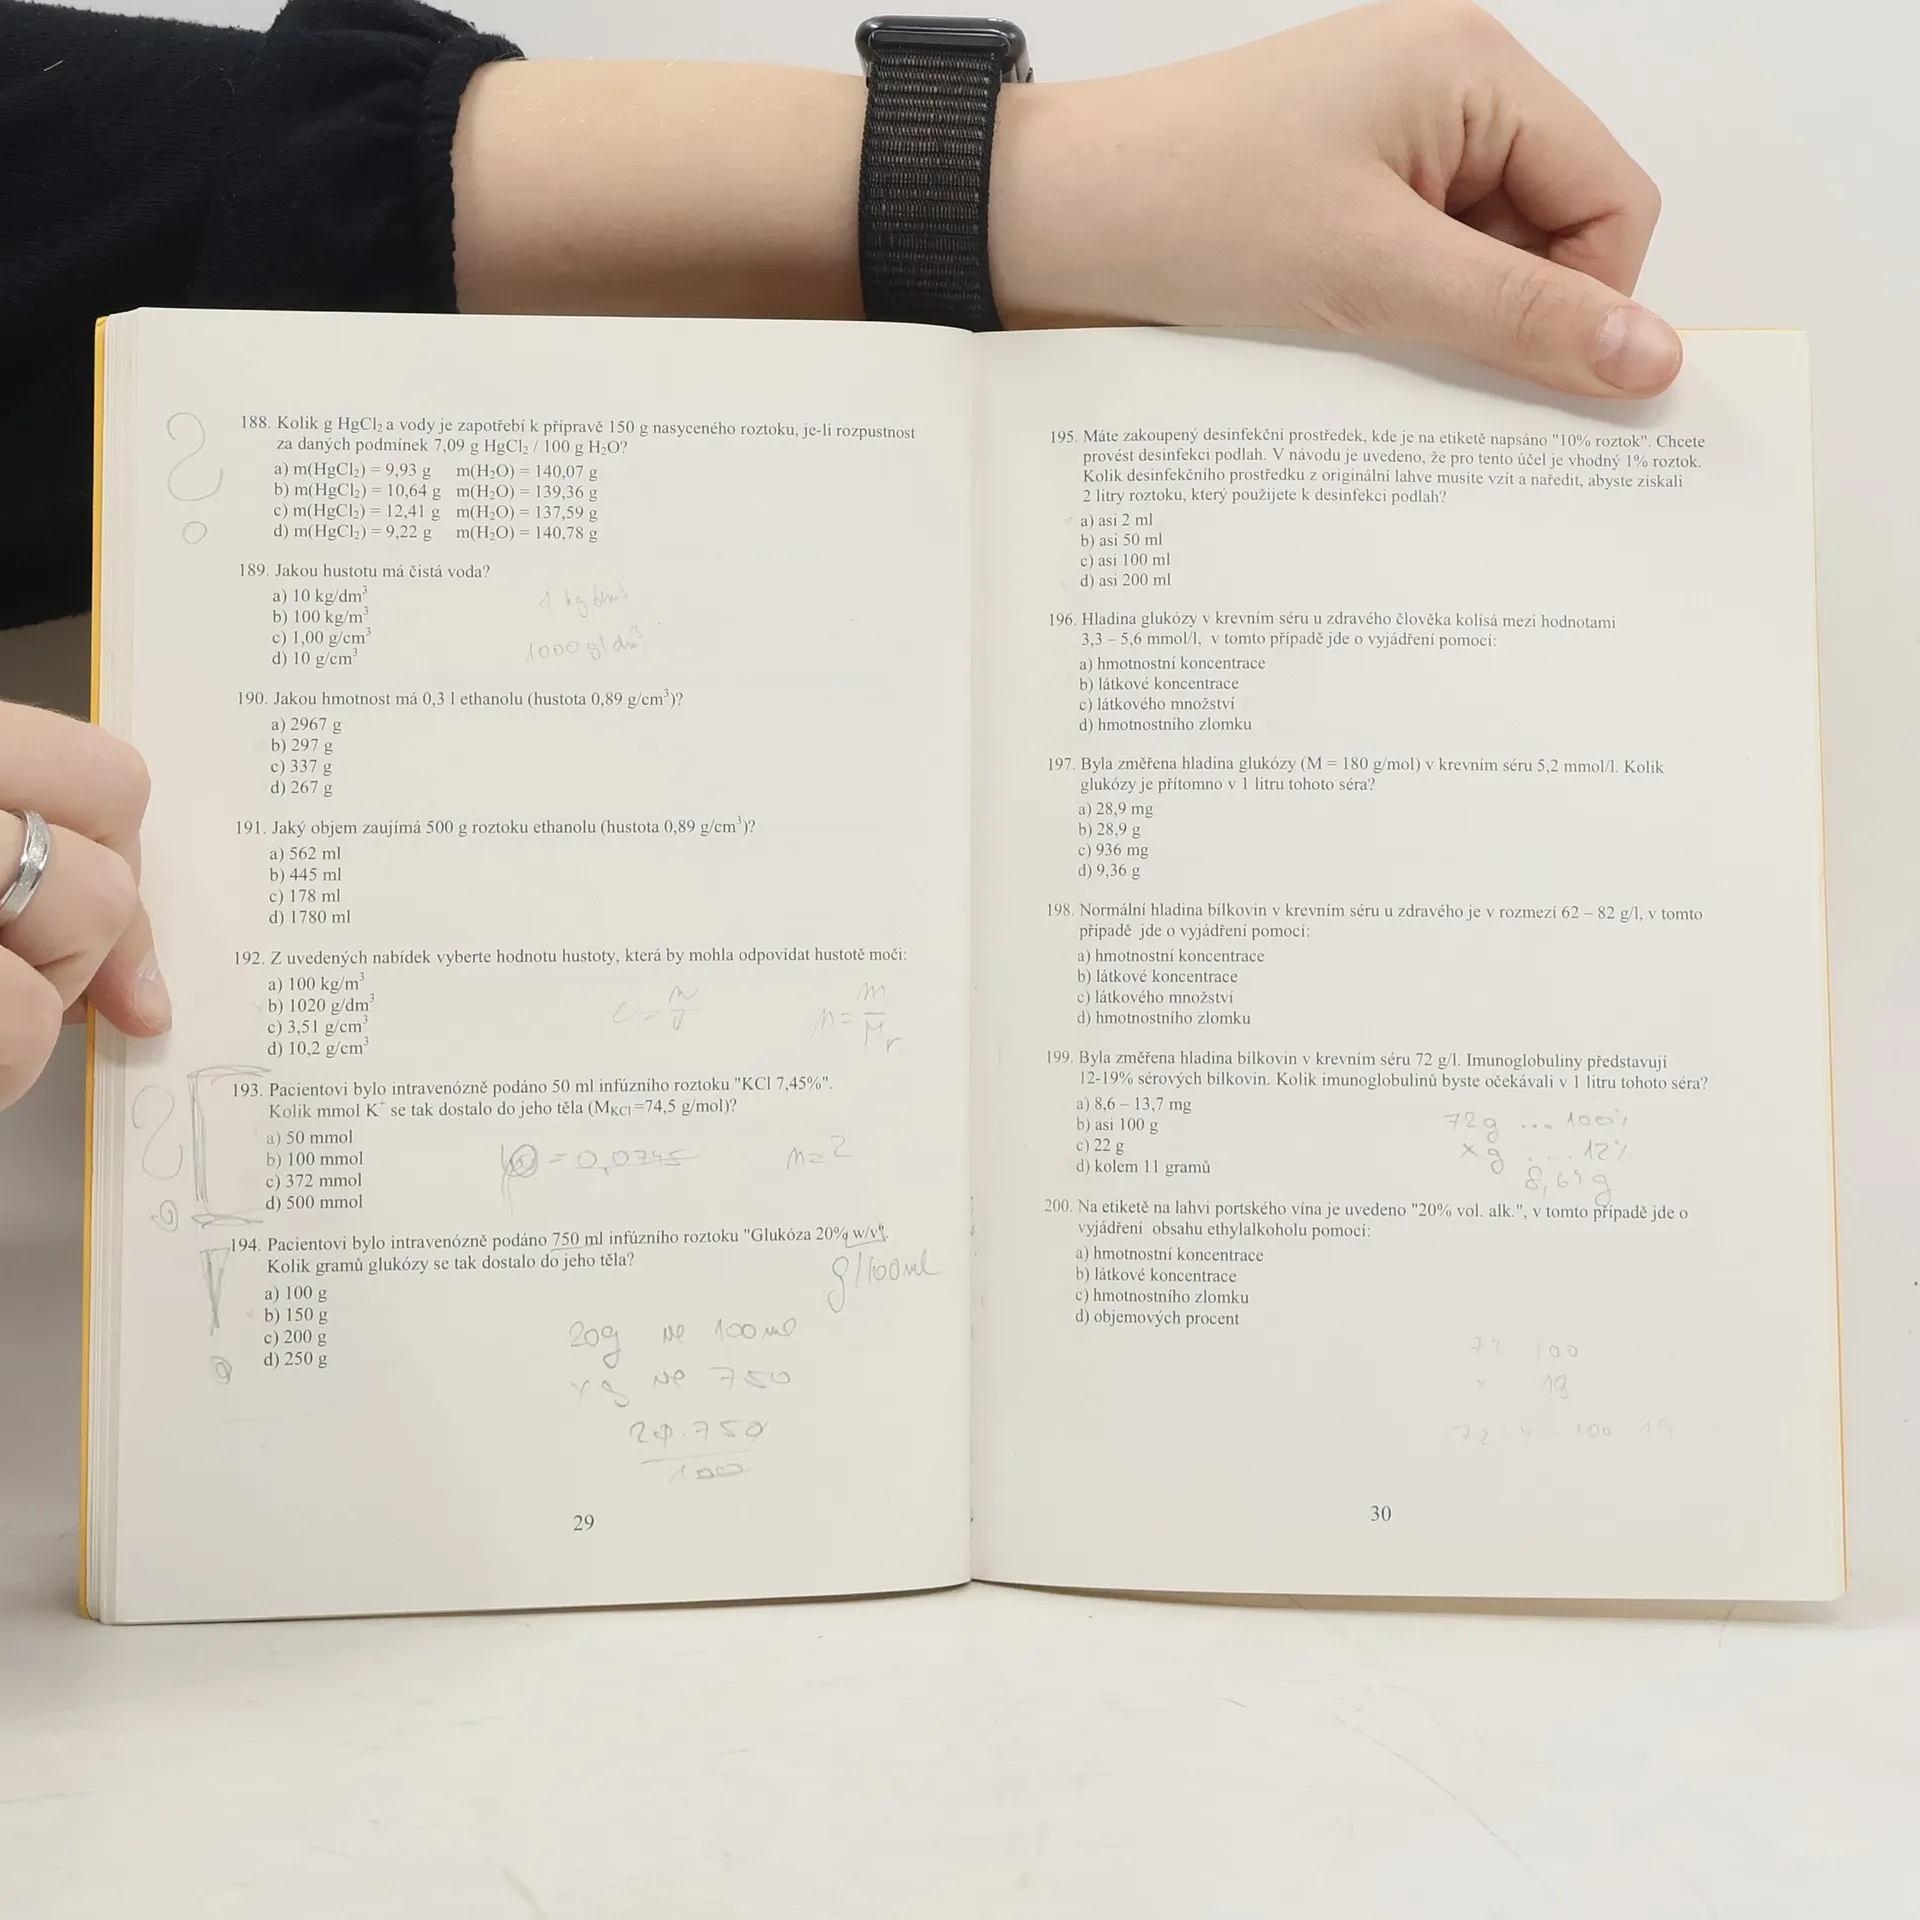 188. Kolik g HgCl₂ a vody je zapotřebí k přípravě 150 g nasyceného roztoku, je-li rozpustnost
za daných podmínek 7,09 g HgCl₂ / 100 g H₂O?
a) m(HgCl₂) = 9,93 g m(H₂O) = 140,07 g
b) m(HgCl₂) = 10,64 g m(H₂O) = 139,36 g
c) m(HgCl₂) = 12,41 g m(H₂O) = 137,59 g
d) m(HgCl₂) = 9,22 g m(H₂O) = 140,78 g
189. Jakou hustotu má čistá voda?
a) 10 kg/dm³
b) 100 kg/m³
c) 1,00 g/cm³
d) 10 g/cm³
1 kg/dm³
1000 g/dm³
190. Jakou hmotnost má 0,3 l ethanolu (hustota 0,89 g/cm³)?
a) 2967 g
b) 297 g
c) 337 g
d) 267 g
191. Jaký objem zaujímá 500 g roztoku ethanolu (hustota 0,89 g/cm³)?
a) 562 ml
b) 445 ml
c) 178 ml
d) 1780 ml
192. Z uvedených nabídek vyberte hodnotu hustoty, která by mohla odpovídat hustotě moči:
a) 100 kg/m³
b) 1020 g/dm³
c) 3,51 g/cm³
d) 10,2 g/cm³
c = n/V n = m/Mr
193. Pacientovi bylo intravenózně podáno 50 ml infúzního roztoku "KCl 7,45%".
Kolik mmol K⁺ se tak dostalo do jeho těla (M_KCl =74,5 g/mol)?
a) 50 mmol
b) 100 mmol
c) 372 mmol
d) 500 mmol
= 0,0745 n = ?
194. Pacientovi bylo intravenózně podáno 750 ml infúzního roztoku "Glukóza 20% w/v".
Kolik gramů glukózy se tak dostalo do jeho těla?
a) 100 g
b) 150 g
c) 200 g
d) 250 g
g/100ml
20g ve 100 ml
x g ve 750
20.750
100
29
195. Máte zakoupený desinfekční prostředek, kde je na etiketě napsáno "10% roztok". Chcete
provést desinfekci podlah. V návodu je uvedeno, že pro tento účel je vhodný 1% roztok.
Kolik desinfekčního prostředku z originální lahve musíte vzít a naředit, abyste získali
2 litry roztoku, který použijete k desinfekci podlah?
a) asi 2 ml
b) asi 50 ml
c) asi 100 ml
d) asi 200 ml
196. Hladina glukózy v krevním séru u zdravého člověka kolísá mezi hodnotami
3,3 – 5,6 mmol/l, v tomto případě jde o vyjádření pomocí:
a) hmotnostní koncentrace
b) látkové koncentrace
c) látkového množství
d) hmotnostního zlomku
197. Byla změřena hladina glukózy (M = 180 g/mol) v krevním séru 5,2 mmol/l. Kolik
glukózy je přítomno v 1 litru tohoto séra?
a) 28,9 mg
b) 28,9 g
c) 936 mg
d) 9,36 g
198. Normální hladina bílkovin v krevním séru u zdravého je v rozmezí 62 – 82 g/l, v tomto
případě jde o vyjádření pomocí:
a) hmotnostní koncentrace
b) látkové koncentrace
c) látkového množství
d) hmotnostního zlomku
199. Byla změřena hladina bílkovin v krevním séru 72 g/l. Imunoglobuliny představují
12-19% sérových bílkovin. Kolik imunoglobulinů byste očekávali v 1 litru tohoto séra?
a) 8,6 – 13,7 mg
b) asi 100 g
c) 22 g
d) kolem 11 gramů
72g ... 100%
x g ... 12%
8,64 g
200. Na etiketě na lahvi portského vína je uvedeno "20% vol. alk.", v tomto případě jde o
vyjádření obsahu ethylalkoholu pomocí:
a) hmotnostní koncentrace
b) látkové koncentrace
c) hmotnostního zlomku
d) objemových procent
72 100
x 19
72 100 19
30